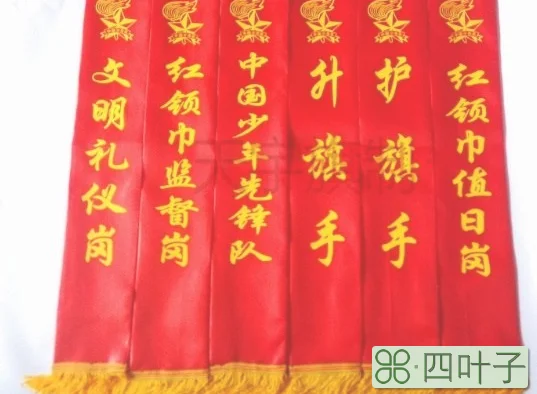 文明礼仪岗
红领巾监督岗
中国少年先锋队
升旗手
护旗手
红领巾值日岗
天宇旗制
四叶子